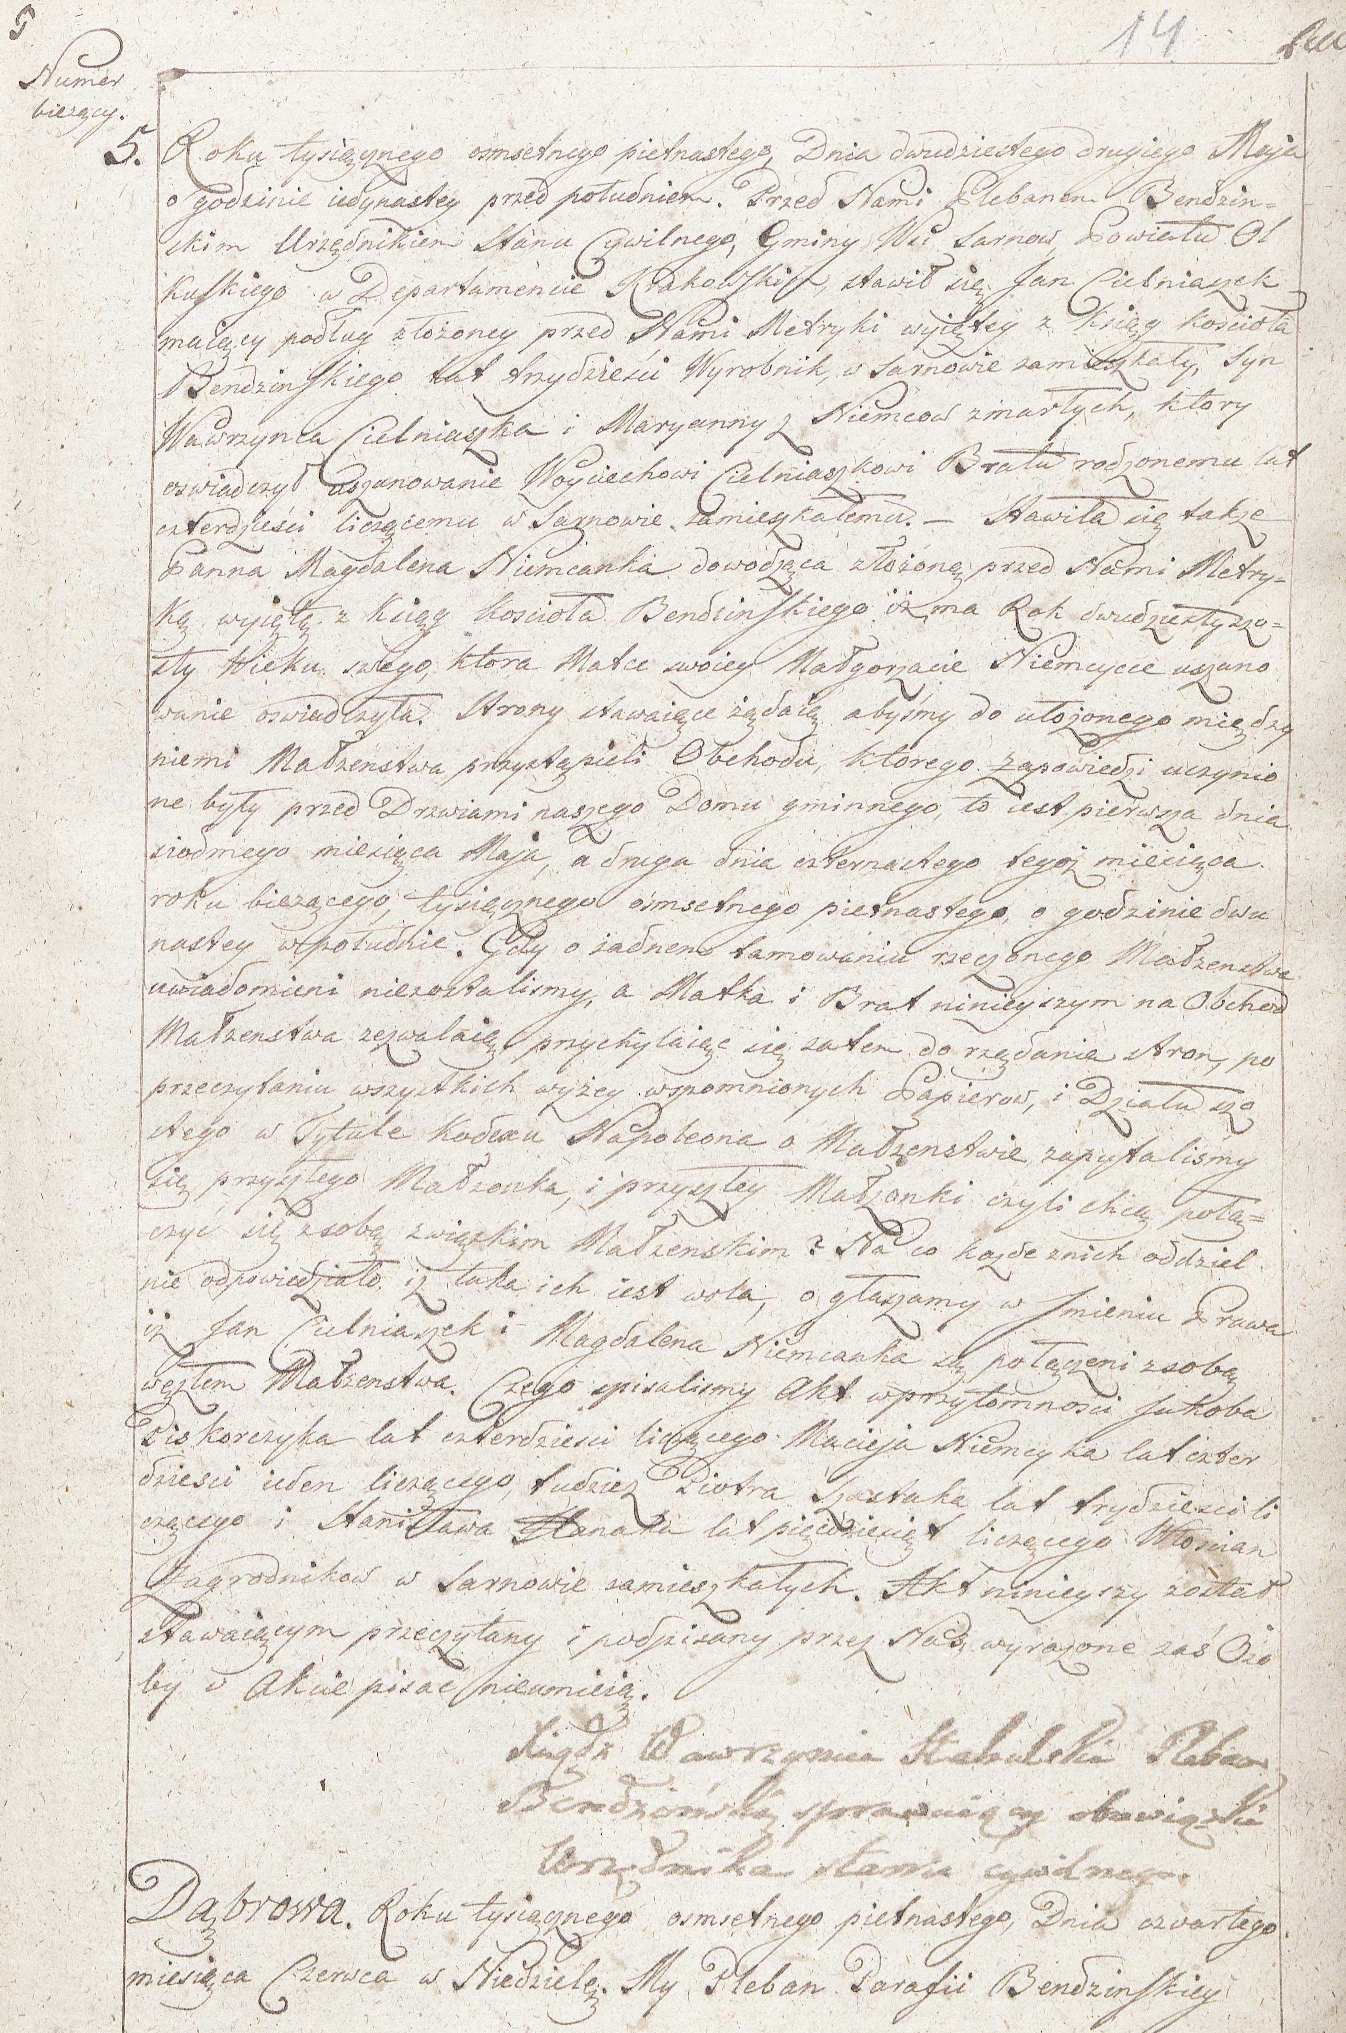 5
14
Numer
bieżący.
5. Roku tysiącznego osmsetnego pietnastego, Dnia dwudziestego drugiego Maja
o godzinie iedynastey przed południem. Przed Nami Plebanem Bendzin=
skim Urzędnikiem Stanu Cywilnego, Gminy Wsi Sarnow, Powiatu Ol
kuskiego w Departamencie Krakowskim, stawił się Jan Cielniaszek
maiący podług złożoney przed Nami Metryki wyiętey z Księg kościoła
Bendzinskiego lat trzydzieści Wyrobnik, w Sarnowie zamieszkały, Syn
Wawrzynca Cielniaszka i Maryanny z Niemcow zmarłych, ktory
oswiadczył uszanowanie Woyciechowi Cielniaszkowi Bratu rodzonemu lat
czterdziesci liczącemu w Sarnowie zamieszkałemu. — Stawiła się także
Panna Magdalena Niemcanka dowodząca złożoną przed Nami Metry=
ką wyiętą z Księg kościoła Bendzinskiego iż ma Rok dwudziesty szo=
sty Wieku swego, ktora Matce swoiey Małgorzacie Niemcycce uszano
wanie oswiadczyła. Strony stawaiące żądaią abyśmy do ułożonego między
niemi Małzenstwa przystąpieli Obchodu, ktorego Zapowiedzi uczynio
ne były przed Drzwiami naszego Domu gminnego, to iest pierwsza dnia
siodmego miesiąca Maja, a druga dnia czternastego tegoż miesiąca
roku bieżącego, tysiącznego osmsetnego pietnastego, o godzinie dwu
nastey w południe. Gdy o żadnem tamowaniu rzeczonego Małzenstwa
uwiadomieni niezostalismy, a Matka i Brat ninieyszym na Obchod
Małzenstwa zezwalaią, przychylaiąc się zatem do rządania stron, po
przeczytaniu wszystkich wyżey wspomnionych Papierow, i Działu szo
stego w Tytule Kodexu Napoleona o Małzenstwie zapytaliśmy
się przyszłego Małzonka, i przyszłey Małzonki czyli chcą połą=
czyc się z sobą związkim Małzenskim? Na co każde z nich oddziel
nie odpowiedziało, iż taka ich iest wola, ogłaszamy w Imieniu Prawa
iż Jan Cielniaszek i Magdalena Niemcanka są połączeni z sobą
węzłem Małzenstwa. Czego spisalismy Akt w przytomnosci Jakoba
Piskorczyka lat czterdziesci liczącego Macieja Niemcyka lat czter
dziesci ieden liczącego, tudziez Piotra Szostaka lat trydziesci li
czącego i Stanisława lat pięcdziesiąt liczącego Włoscian
Zagrodnikow w Sarnowie zamieszkałych. Akt ninieyszy został
stawaiącym przeczytany i podpisany przez Nas, wyrażone zaś Oso
by w Akcie pisac nieumieią.
Xiądz Wawrzyniec Stabulski Pleban
Bendzinski sprawuiący obowiązki
Urzędnika stanu cywilnego.
Dąbrowa. Roku tysiącznego osmsetnego pietnastego, Dnia czwartego
miesiąca Czerwca w Niedzielę. My Pleban Parafii Bendzinskiey